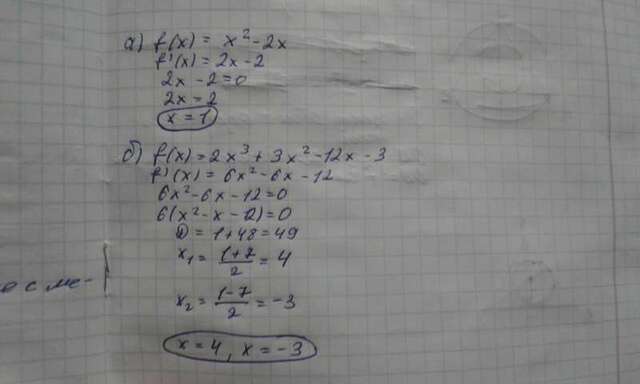 а) f(x) = x² - 2x
f'(x) = 2x - 2
2x - 2 = 0
2x = 2
x = 1
б) f(x) = 2x³ + 3x² - 12x - 3
f'(x) = 6x² - 6x - 12
6x² - 6x - 12 = 0
6(x² - x - 12) = 0
D = 1 + 48 = 49
x₁ = (1+7)/2 = 4
x₂ = (1-7)/2 = -3
x = 4, x = -3